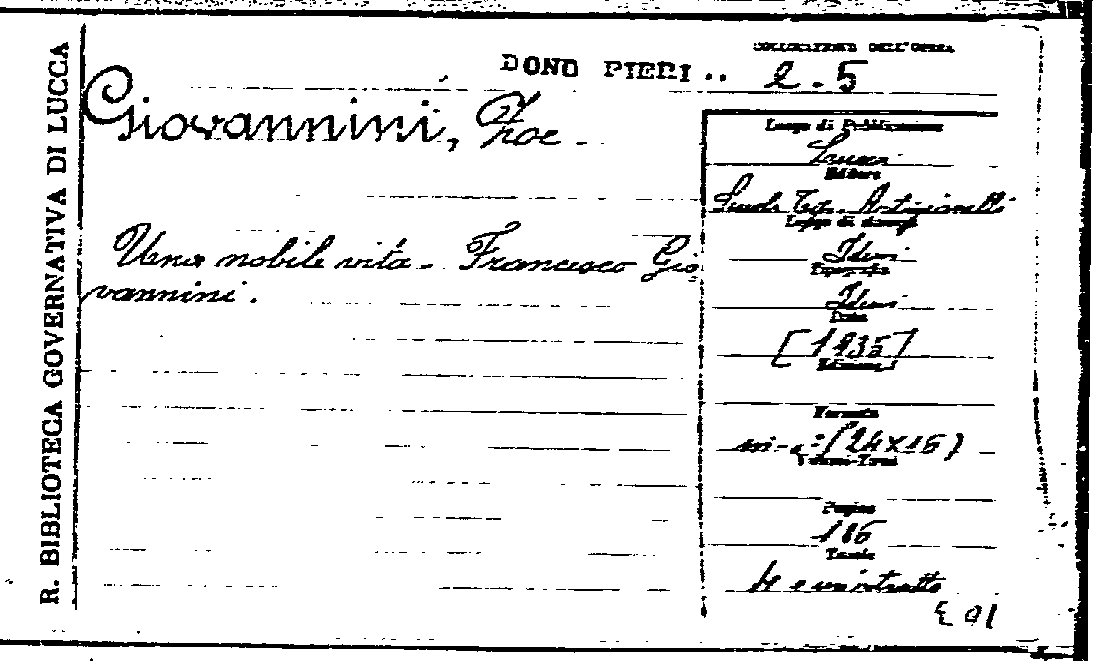 R. BIBLIOTECA GOVERNATIVA DI LUCCA
COLLOCAZIONE DELL'OPERA
DONO PIERI .. 2.5
Giovannini, Zoe.
Una nobile vita - Francesco Gio
vannini.
Luogo di Pubblicazione
Lucca
Editore
Scuola Tip. Artigianelli
Luogo di stampa
Idem
Tipografia
Idem
Data
[1935]
Edizione
Formato
in-8° (24x16)
Volumi-Tomi
Pagine
186
Tavole
e un ritratto